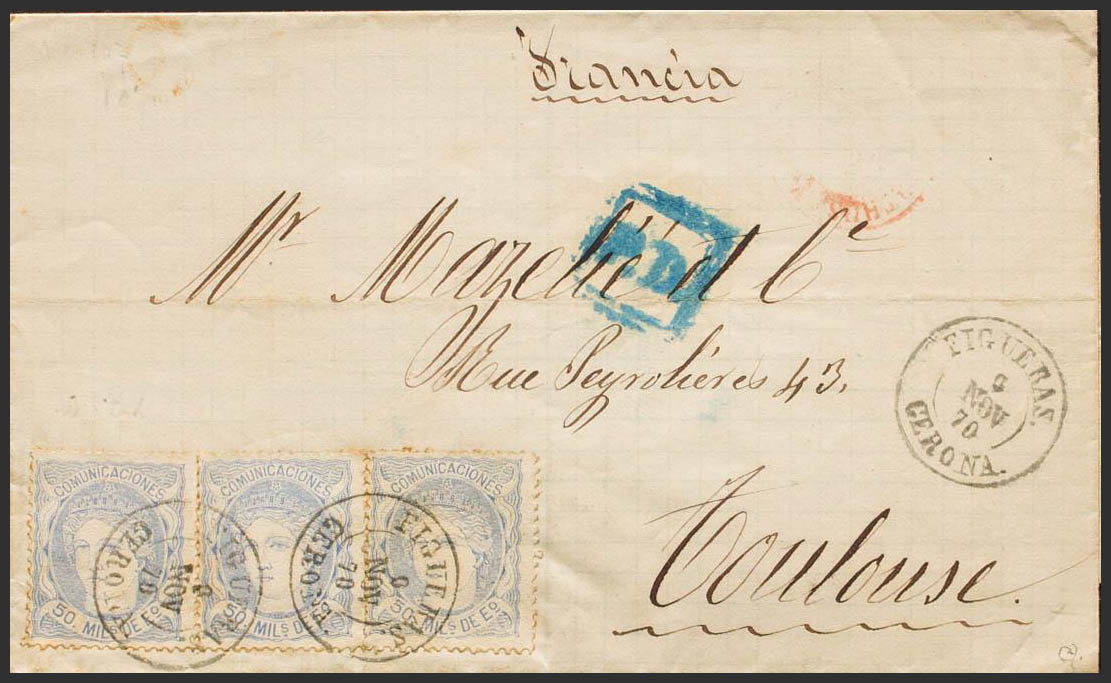 Francia
Mr Mazelié et Cie
P.D.
Rue Peyrolières 43.
FIGUERAS.
9
NOV
70
GERONA.
Toulouse.
COMUNICACIONES
50. MILS DE EO
COMUNICACIONES
50. MILS DE EO
COMUNICACIONES
50. MILS DE EO
NOV
70
FIGUERAS.
9
NOV
70
GERONA.